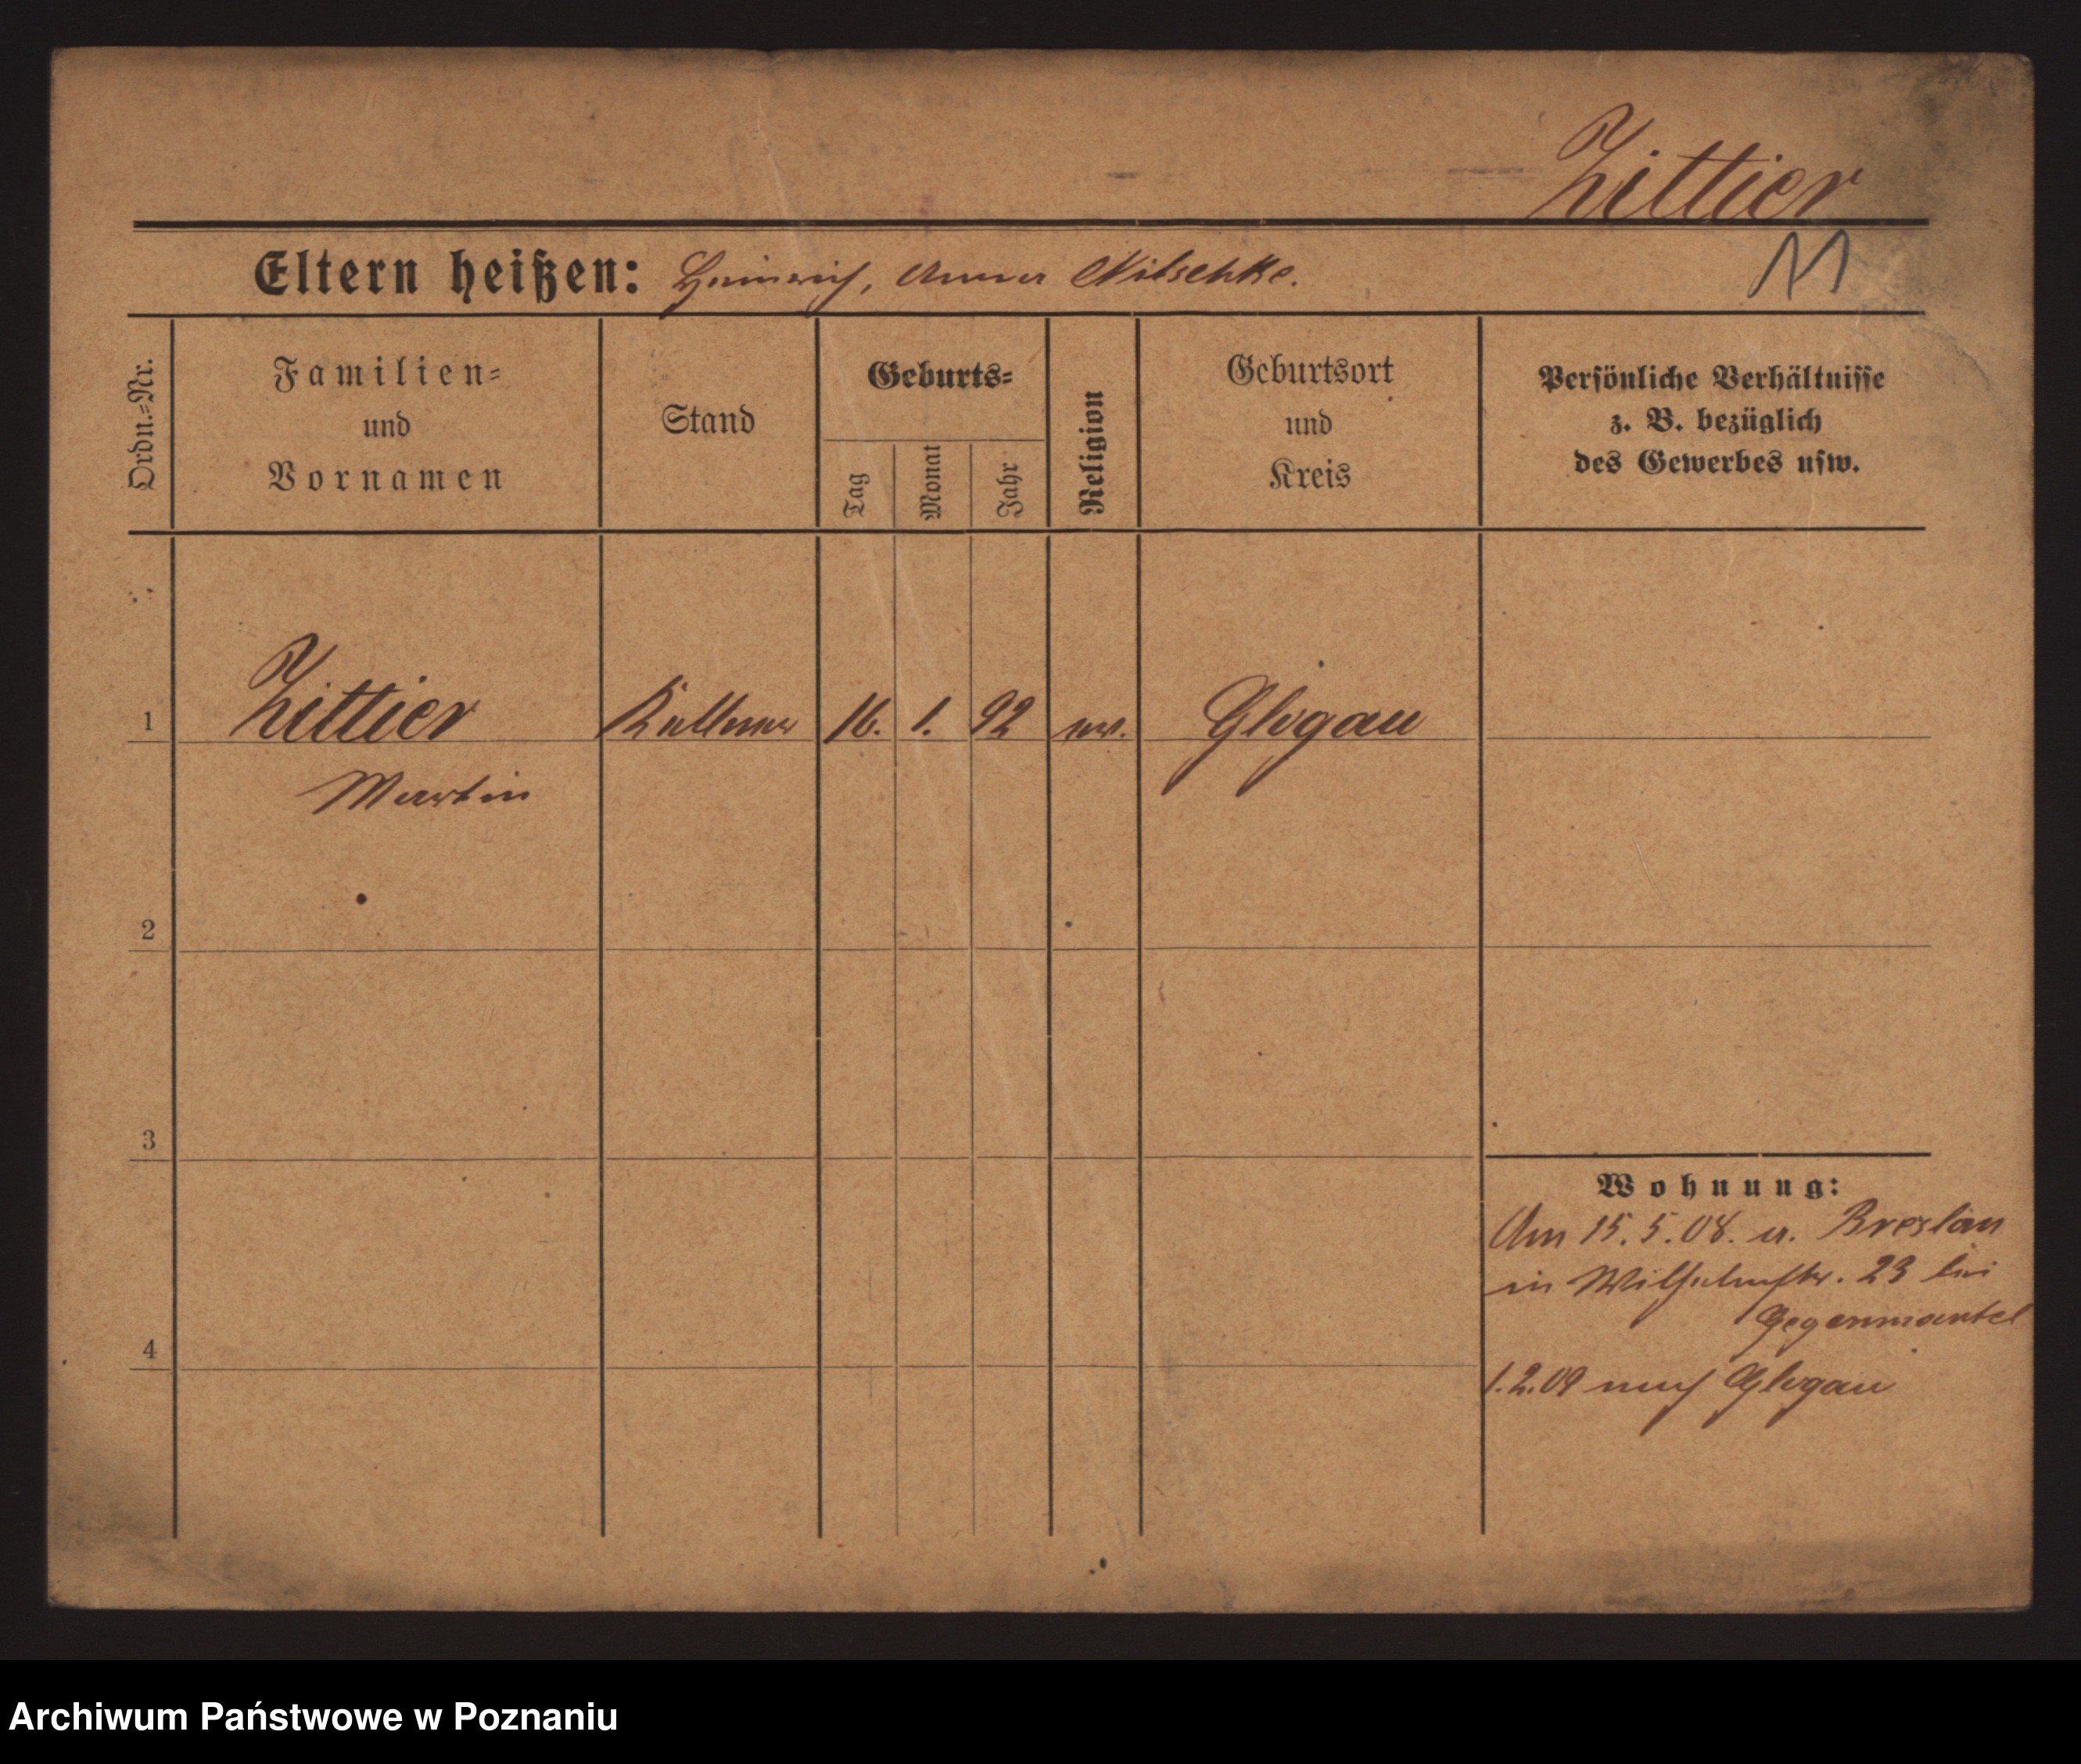 Zittier
Eltern heißen: Heinrich, Anna Nitschke.
11
Ordn.=Nr.
Familien=
und
Vornamen
Stand
Geburts=
Tag
Monat
Jahr
Religion
Geburtsort
und
Kreis
Persönliche Verhältnisse
z. B. bezüglich
des Gewerbes usw.
1 Zittier Kellner 16. 1. 92 ev. Glogau
Martin
2
3
Wohnung:
Am 15.5.08. a. Breslau
in Wilhelmstr. 23 bei
Gegenmantel
4
1.2.09 nach Glogau
Archiwum Państwowe w Poznaniu